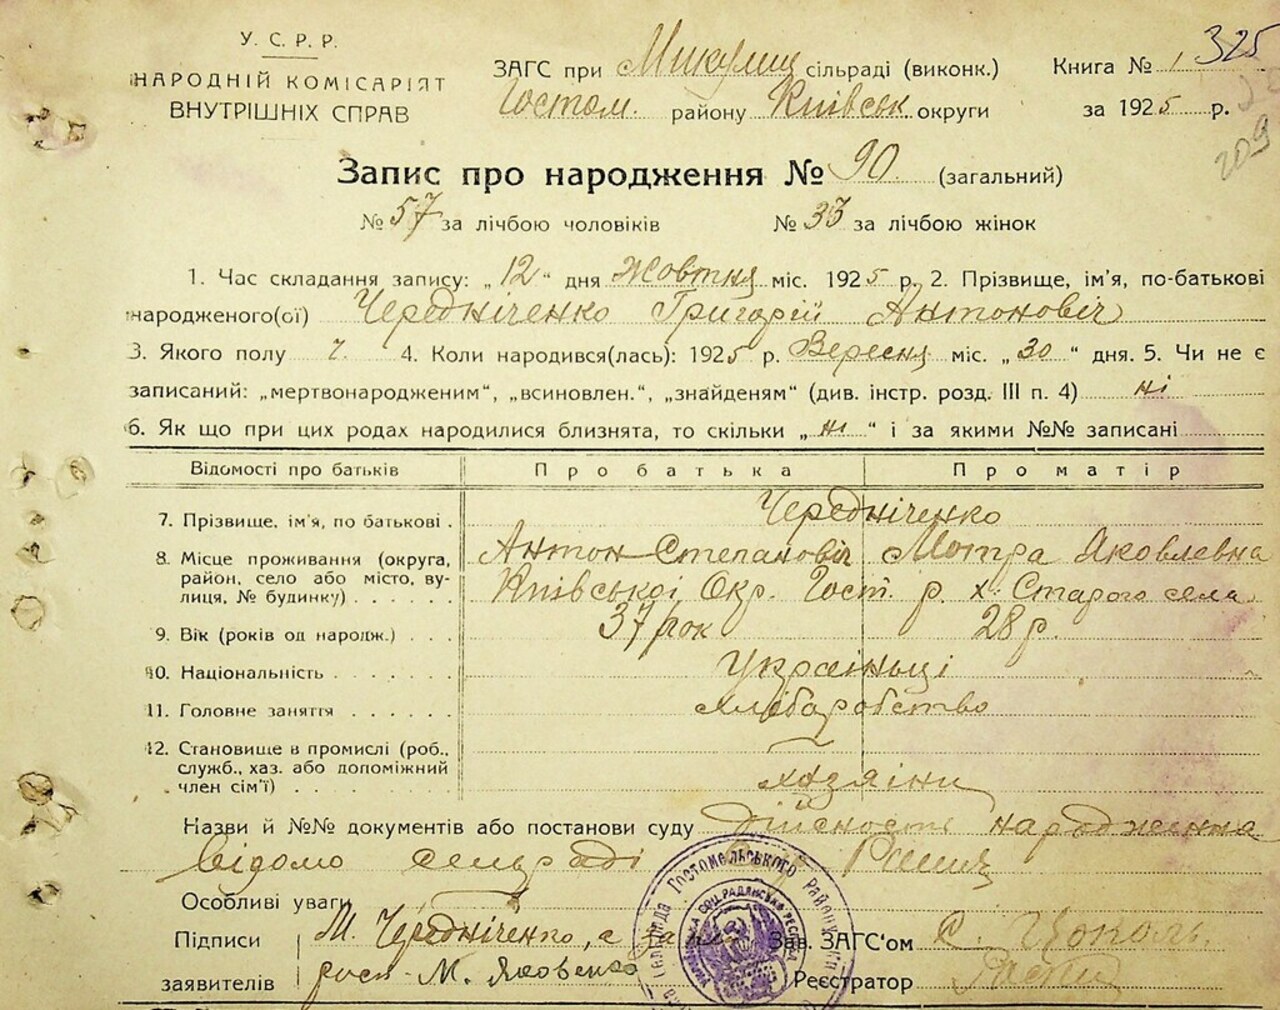 У. С. Р. Р.
НАРОДНІЙ КОМІСАРІЯТ
ВНУТРІШНІХ СПРАВ
ЗАГС при Микулиц сільраді (виконк.)
Гостом. району Київськ. округи
Книга № 1 325
за 1925 р.
209
Запис про народження № 90 (загальний)
№ 57 за лічбою чоловіків № 33 за лічбою жінок
1. Час складання запису: „12“ дня Жовтня міс. 1925 р. 2. Прізвище, ім'я, по-батькові
народженого(ої) Чередніченко Григорій Антоновіч
3. Якого полу ч. 4. Коли народився(лась): 1925 р. Вересня міс. „30“ дня. 5. Чи не є
записаний: „мертвонародженим“, „всиновлен.“, „знайденям“ (див. інстр. розд. III п. 4) ні
6. Як що при цих родах народилися близнята, то скільки „ні“ і за якими №№ записані
Відомості про батьків Про батька Про матір
7. Прізвище, ім'я, по батькові . Чередніченко
Антон Степановіч Мотра Яковлевна
8. Місце проживання (округа, район, село або місто, вулиця, № будинку) . . . . . Київської Окр. Гост. р. х. Старого села
9. Вік (років од народж.) . . . 37 рок 28 р.
10. Національність . . . . . . Украіньці
11. Головне заняття . . . . . . хлібаробство
12. Становище в промислі (роб., служб., хаз. або допоміжний член сім'ї) . . . . . . . . хазяіни
Назви й №№ документів або постанови суду дійсность народження
відомо сельраді
Особливі уваги
Підписи М. Чередніченко, а
заявителів М. Яковенко
Зав. ЗАГС'ом С. Цоколь
Реєстратор
Гостомельського району